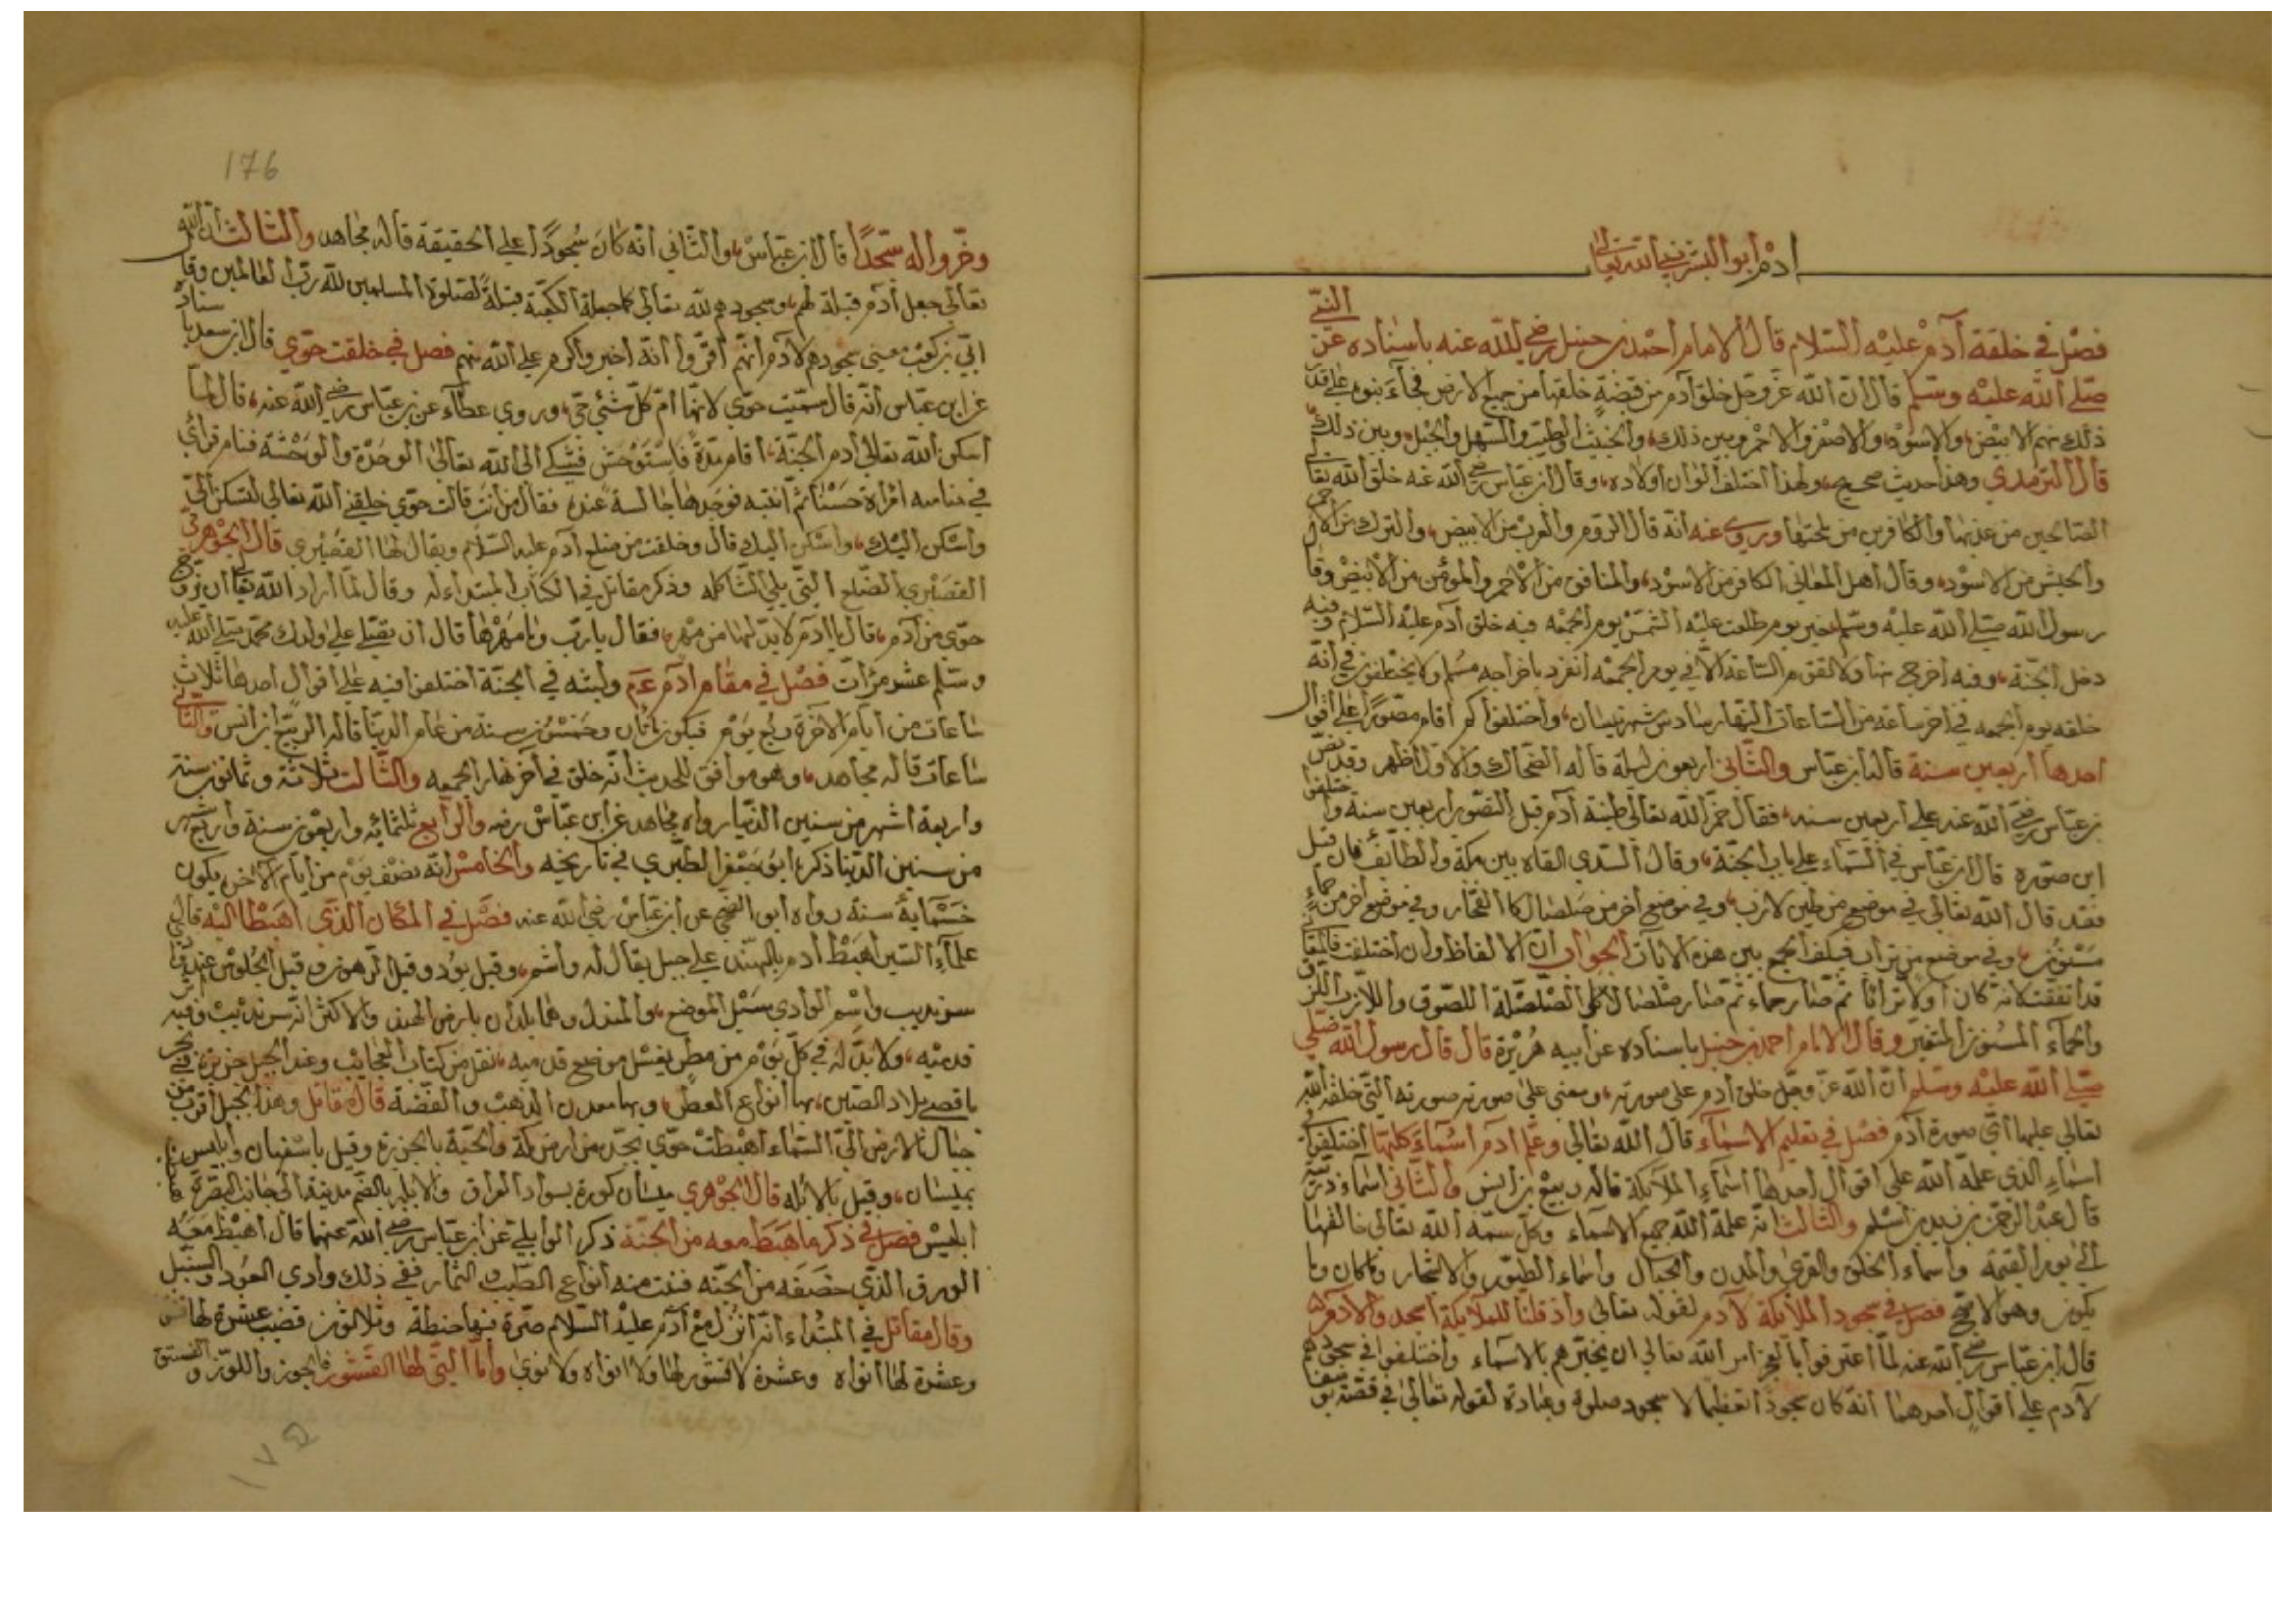 ادم أبو البشر نبي الله تعالى
النبي
فصل في خلقة آدم عليه السلام قال الامام احمد بن حنبل رضي الله عنه باسناده عن
صلى الله عليه وسلم قال ان الله عز وجل خلق آدم من قبضة خلقها من جميع الارض فجاء بنوه على قدر
ذلك منهم الابيض والاسود والاصفر والاحمر وبين ذلك والخبيث والطيب والسهل والجبل وبين ذلك
قال الترمدي وهذا حديث صحيح ولهذا اختلف الوان اولاده وقال ابن عباس رضي الله عنه خلق الله تعالى
الصالحين من عذبها والكافرين من ملحها وروي عنه انه قال الروم والعرب من الابيض والترك من الاحمر
والحبش من الاسود وقال اهل المعاني الكافر من الاسود والمنافق من الاحمر والمؤمن من الابيض وقال
رسول الله صلى الله عليه وسلم خير يوم طلعت عليه الشمس يوم الجمعه فيه خلق آدم عليه السلام وفيه
دخل الجنة وفيه اخرج منها ولا تقوم الساعة الا في يوم الجمعه انفرد باخراجه مسلم ولا يختلفون في انه
خلقه يوم الجمعه في اخر ساعة من الساعات النهار سادس شهر نيسان واختلفوا كم اقام مصورا على اقوال
احدها اربعين سنة قاله ابن عباس والثاني اربعون ليلة قاله الضحاك والاول اظهر وقد نص
بن عباس رضي الله عنه على اربعين سنه فقال خمر الله تعالى طينة آدم قبل التصور اربعين سنة واختلفوا
اين صوره قال ابن عباس في السماء على باب الجنة وقال السدي القاه بين مكة والطائف فان قيل
فقد قال الله تعالى في موضع من طين لازب وفي موضع آخر من صلصال كالفخار وفي موضع آخر من حماء
مسنون وفي موضع من تراب فكيف الجمع بين هذه الايات الجواب ان الالفاظ وان اختلفت فالمعا
قد اتفقت لانه كان اولا ترابا ثم صار حماء ثم صار صلصالا الصلصلة اللصوق واللازب اللزق
والحماء المسنون المتغير وقال الامام احمد بن حنبل باسناده عن ابيه هريرة قال قال رسول الله صلى
صلى الله عليه وسلم ان الله عز وجل خلق آدم على صورته ومعنى على صورته صورته التي خلقه الله
تعالى عليها اي صورة آدم فصل في تعليم الاسماء قال الله تعالى وعلم آدم اسماء كلها اختلفوا في
اسماء الذي علمه الله على اقوال احدها اسماء الملائكة قاله ربيع بن انس والثاني اسماء ذريته
قال عبد الرحمن بن زيد بن اسلم والثالث انه علمه الله جميع الاسماء وكل سمه الله تعالى خالقها
الى يوم القيمة واسماء الخلق والقرى والمدن والجبال واسماء الطيور والاشجار وما كان وما
يكون وهو الاصح فصل في سجود الملائكة لآدم لقوله تعالى واذ قلنا للملائكة اسجدوا لآدم
قال ابن عباس رضي الله عنه لما اعترفوا بالعجز امر الله تعالى ان يخبرهم بالاسماء واختلفوا في سجودهم
لآدم على اقوال احدهما انه كان سجود تعظيما لا سجود صلوة وعبادة لقوله تعالى في قصة يوسف
176
وخروا له سجدا قال ابن عباس والثاني انه كان سجودا على الحقيقة قاله مجاهد والثالث ان الله
تعالى جعل آدم قبلة لهم وسجودهم لله تعالى كما جعلة الكعبة قبلة لصلوة المسلمين لله رب العالمين وقال
ابي بن كعب معنى سجودهم لآدم انهم اقروا انه اخير واكرم على الله منهم فصل في خلقت حوى قال ابن سعد باسناد
عن ابن عباس انه قال سميت حوى لانها ام كل شئي حي وروي عطاء عن بن عباس رضي الله عنه قال لما
اسكن الله تعالى ادم الجنة اقام مدة فاستوحش فشكى الى الله تعالى الوحدة والوحشة فنام فرأى
في منامه امراة حسنا ثم انتبه فوجدها جالسة عنده فقال من انت قالت حوى خلقني الله تعالى لتسكن الي
واسكن اليك قال وخلقت من ضلع آدم عليه السلام ويقال لها القصيري قال الجوهري
القصيري الضلع التي يلي الشاكله وذكر مقاتل في الكتاب المبتداء له وقال لما اراد الله تعالى ان يزوج
حوى من آدم قال يا آدم لا بد لها من مهر فقال يا رب وما مهرها قال ان تصلي على ولدك محمد صلى الله عليه
وسلم عشر مرات فصل في مقام ادم ع م ولبثه في الجنة اختلفوا فيه على اقوال احدها ثلاث
ساعات من ايام الآخرة ربع يوم فيكون مأتان وخمسون سنة من عام الدنيا قاله الربيع ابن انس والثاني
ساعات قاله مجاهد وهو موافق للحديث انه خلق في آخر نهار الجمعه والثالث ثلاثة وثمانون سنة
واربعة اشهر من سنين الدنيا رواه مجاهد عن ابن عباس رضه والرابع ثلثمائه واربعون سنة واربع اشهر
من سنين الدنيا ذكره ابو جعفر الطبري في تاريخه والخامس انه نصف يوم من ايام الآخر يكون
خسماية سنة رواه ابو الضحى عن ابن عباس رضي الله عنه فصل في المكان الذي اهبط اليه قال
علماء السير اهبط ادم بالهند على جبل يقال له واشم وقيل بود وقيل الرهون وقيل
سرنديب واسم الوادي سبيل الموضع والمندل وهما بلدان بارض الهند والاكثر انه سرنديب وفيه
قدميه ولا بد له في كل يوم من مطر يغسل موضع قدميه نقل من كتاب العجائب وعند الجبل جزيرة في بحر
باقصى بلاد الصين بها انواع العطر وبها معدن الذهب والفضة قاله مقاتل وهذا الجبل اقرب من
جبال الارض الى السماء اهبطت حوى بجده من ارض مكة والحية بالجزيرة وقيل باصفهان وابليس
بميسان وقيل بالابله قال الجوهري ميسان كورة بسواد العراق والابله بالضم مدينة الى جانب البصرة
ابليس فصل في ذكر ما هبط معه من الجنة ذكر الوابلي عن ابن عباس رضي الله عنهما قال اهبط معه
الورق الذي خصفه من الجنه فنبت منه انواع الطيب والثمار ففي ذلك وادي العود والسنبل
وقال مقاتل في المبتداء انه انزل مع آدم عليه السلام صرة فيها حنطة وثلاثون قضيب عشرة لها قشر
وعشرة لها انواه وعشرة لا قشور لها ولا انواه ولا نوى واما التي لها القشور فالجوز واللوز والفستق
١٧٥